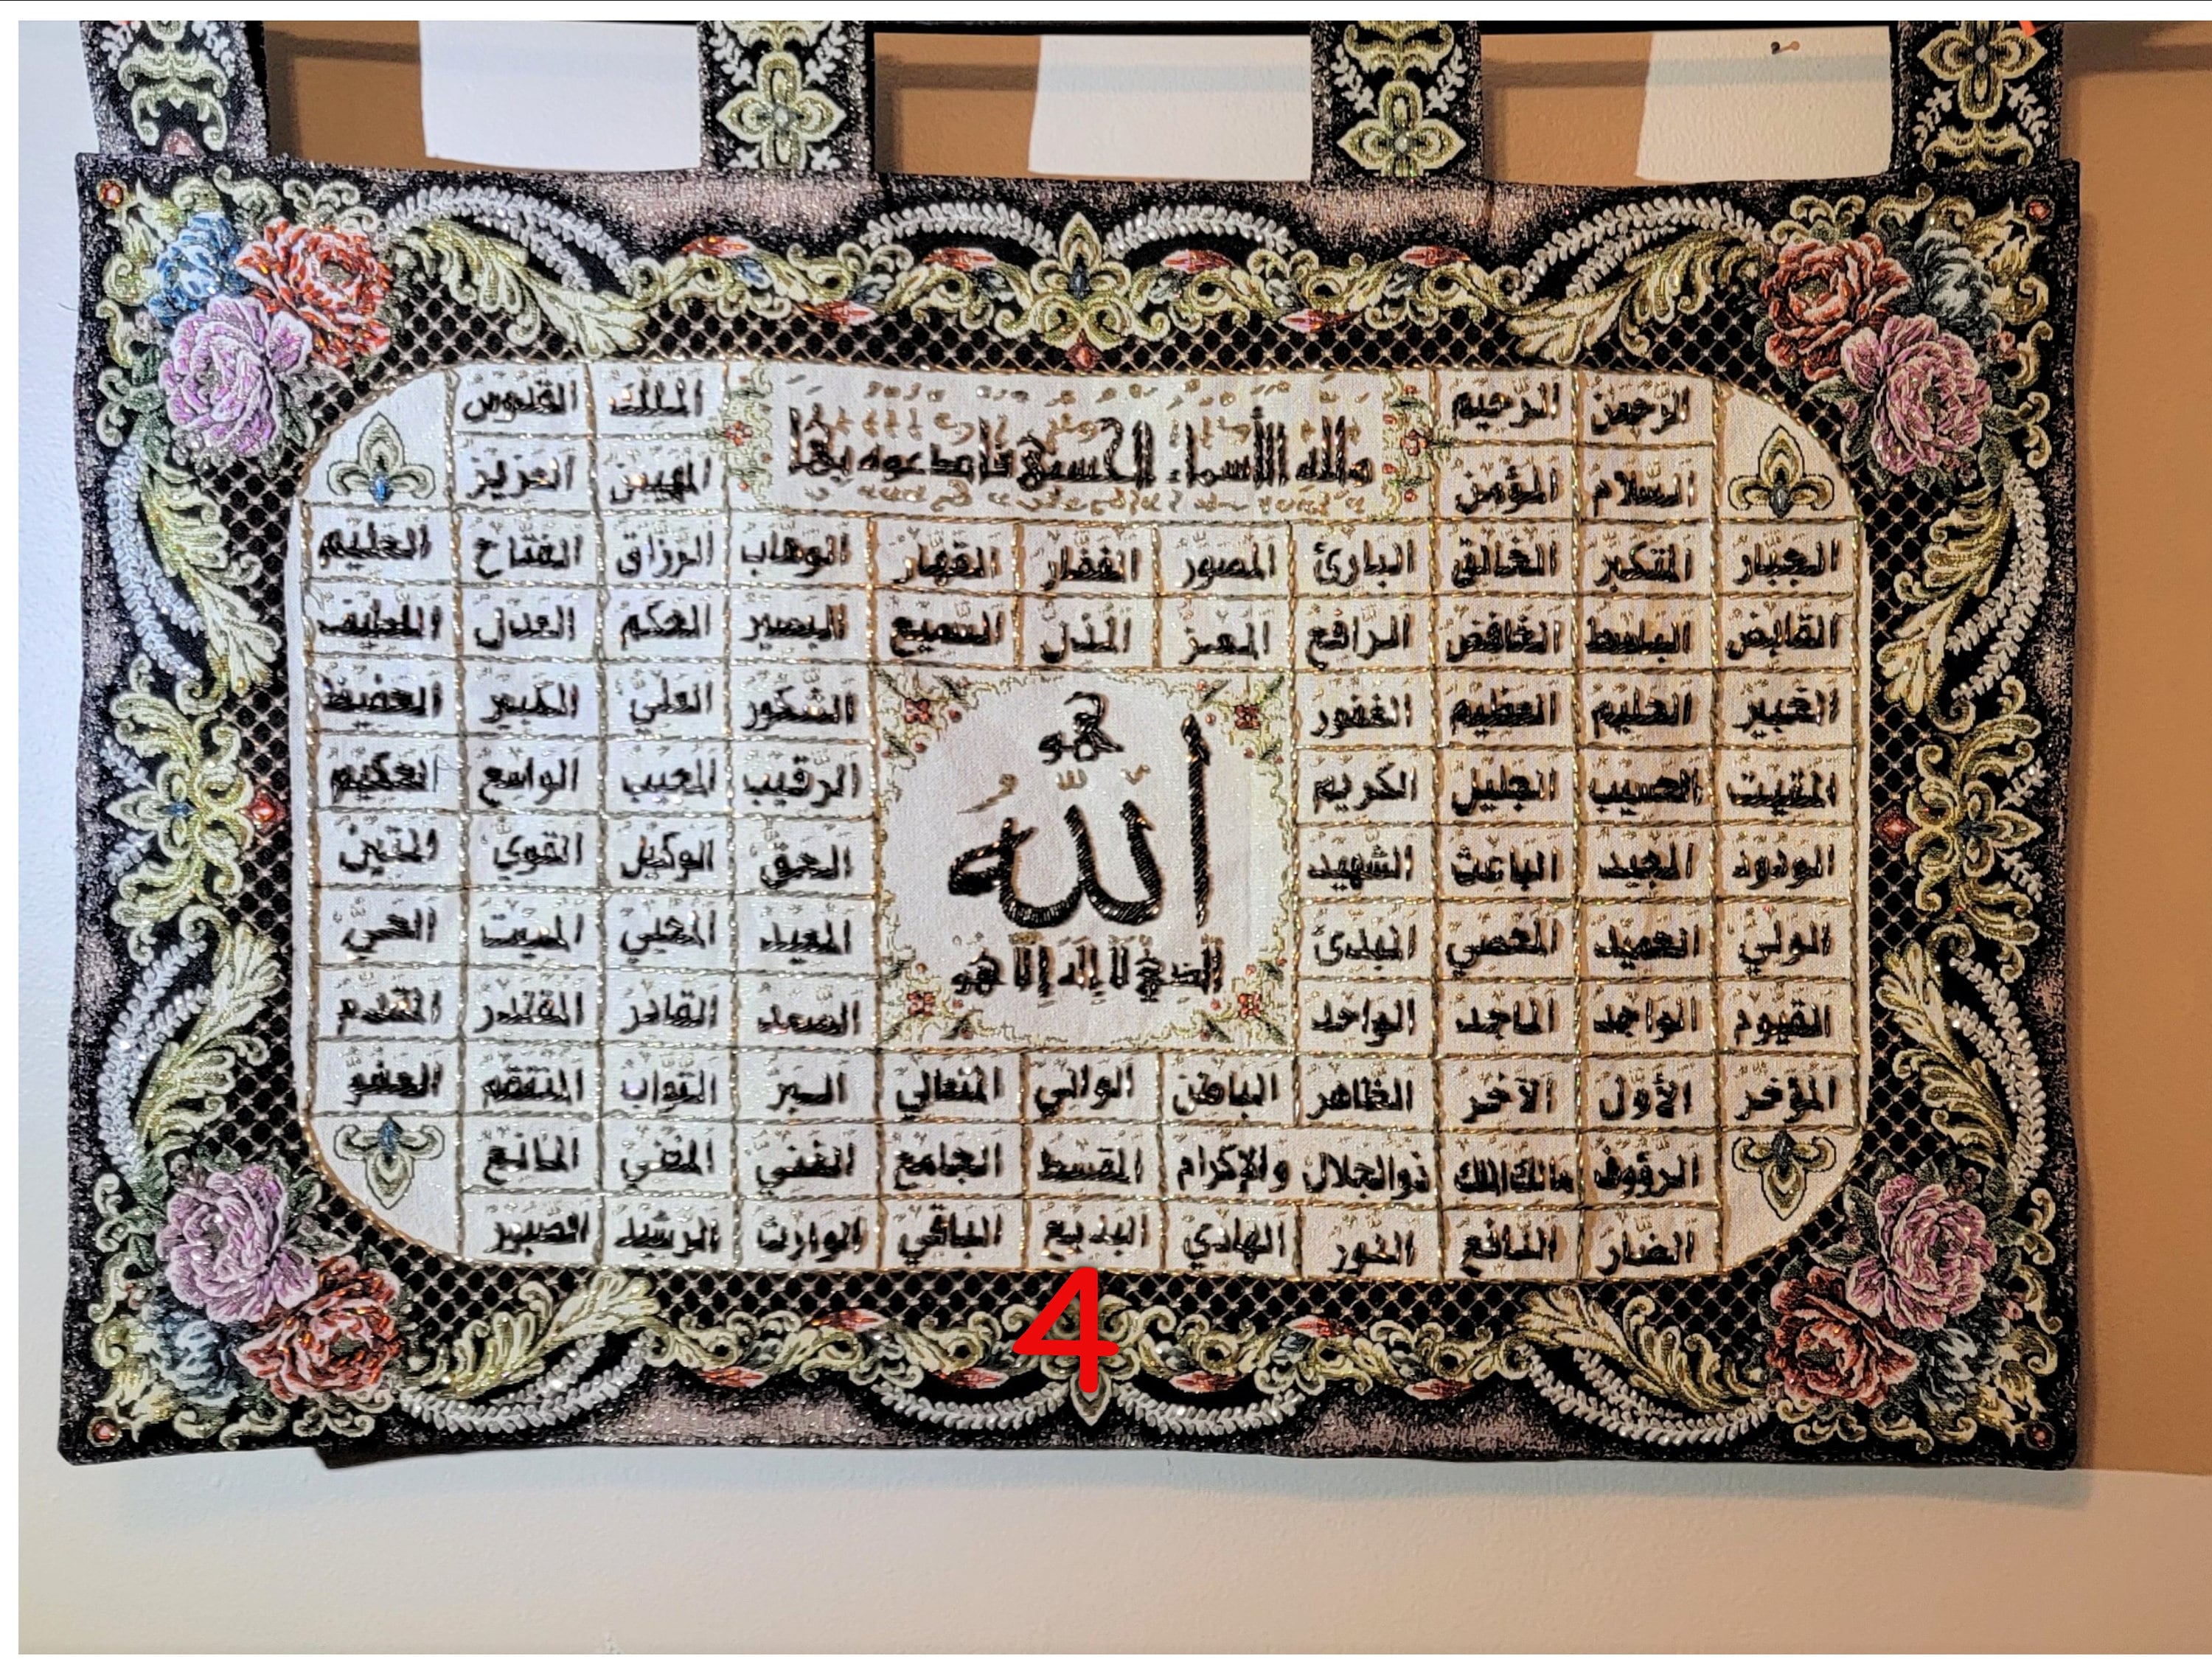 الرحمن الرحيم ولله الأسماء الحسنى فادعوه بها الملك القدوس
السلام المؤمن المهيمن العزيز
الجبار المتكبر الخالق البارئ المصور الغفار القهار الوهاب الرزاق الفتاح العليم
القابض الباسط الخافض الرافع المعز المذل السميع البصير الحكم العدل اللطيف
الخبير الحليم العظيم الغفور الشكور العلي الكبير الحفيظ
المقيت الحسيب الجليل الكريم الرقيب المجيب الواسع الحكيم
الودود المجيد الباعث الشهيد الحق الوكيل القوي المتين
الولي الحميد المحصي المبدئ المعيد المحيي المميت الحي
القيوم الواجد الماجد الواحد الصمد القادر المقتدر المقدم
هو
الله
الذي لا إله إلا هو
المؤخر الأول الآخر الظاهر الباطن الوالي المتعالي البر التواب المنتقم العفو
الرؤوف مالك الملك ذو الجلال والإكرام المقسط الجامع الغني المغني المانع
الضار النافع النور الهادي البديع الباقي الوارث الرشيد الصبور
4